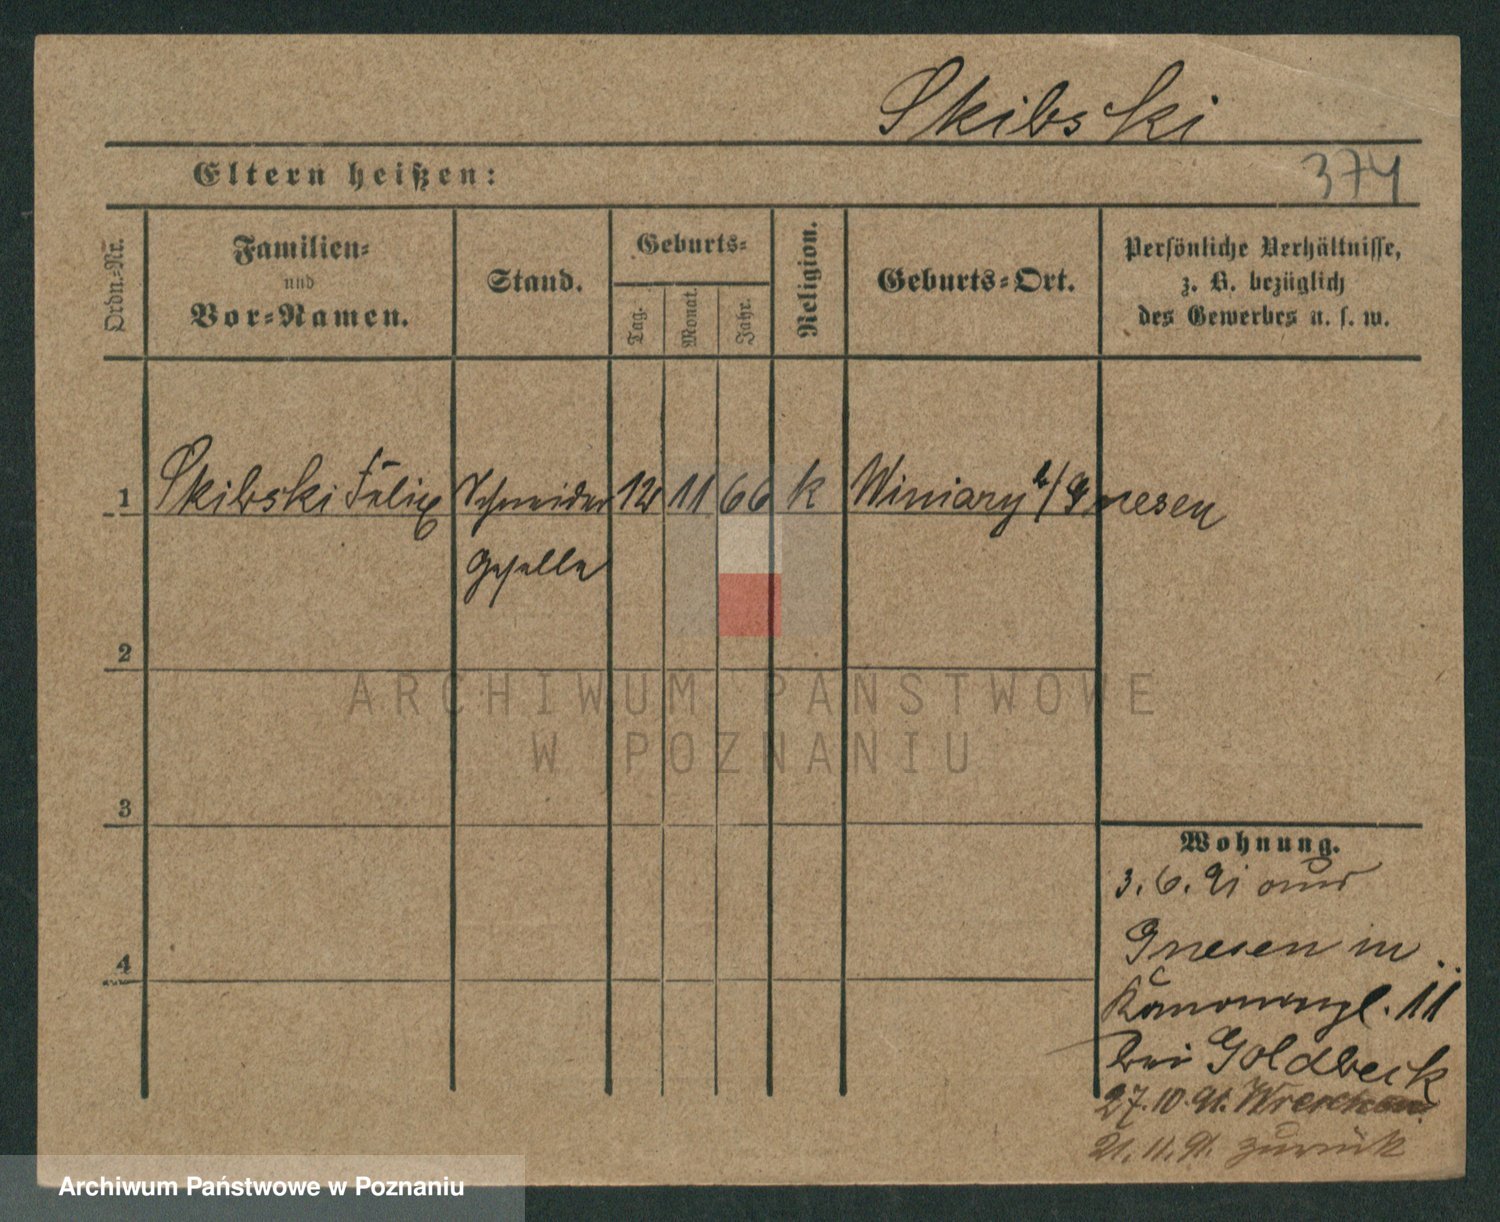 Skibski
Eltern heißen:
374
Ordn.-Nr.
Familien-
und
Vor-Namen.
Stand.
Geburts-
Tag.
Monat.
Jahr.
Religion.
Geburts-Ort.
Persönliche Verhältnisse,
z. B. bezüglich
des Gewerbes u. s. w.
1 Skibski Felix Schneider 12 11 66 k Winiary b/Gnesen
Geselle
2
ARCHIWUM PAŃSTWOWE
W POZNANIU
3
4
Wohnung.
3.6.91 aus
Gnesen in
Kanonenpl. 11
bei Goldbeck
27.10.91. Wreschen
21.11.91. zurück
Archiwum Państwowe w Poznaniu